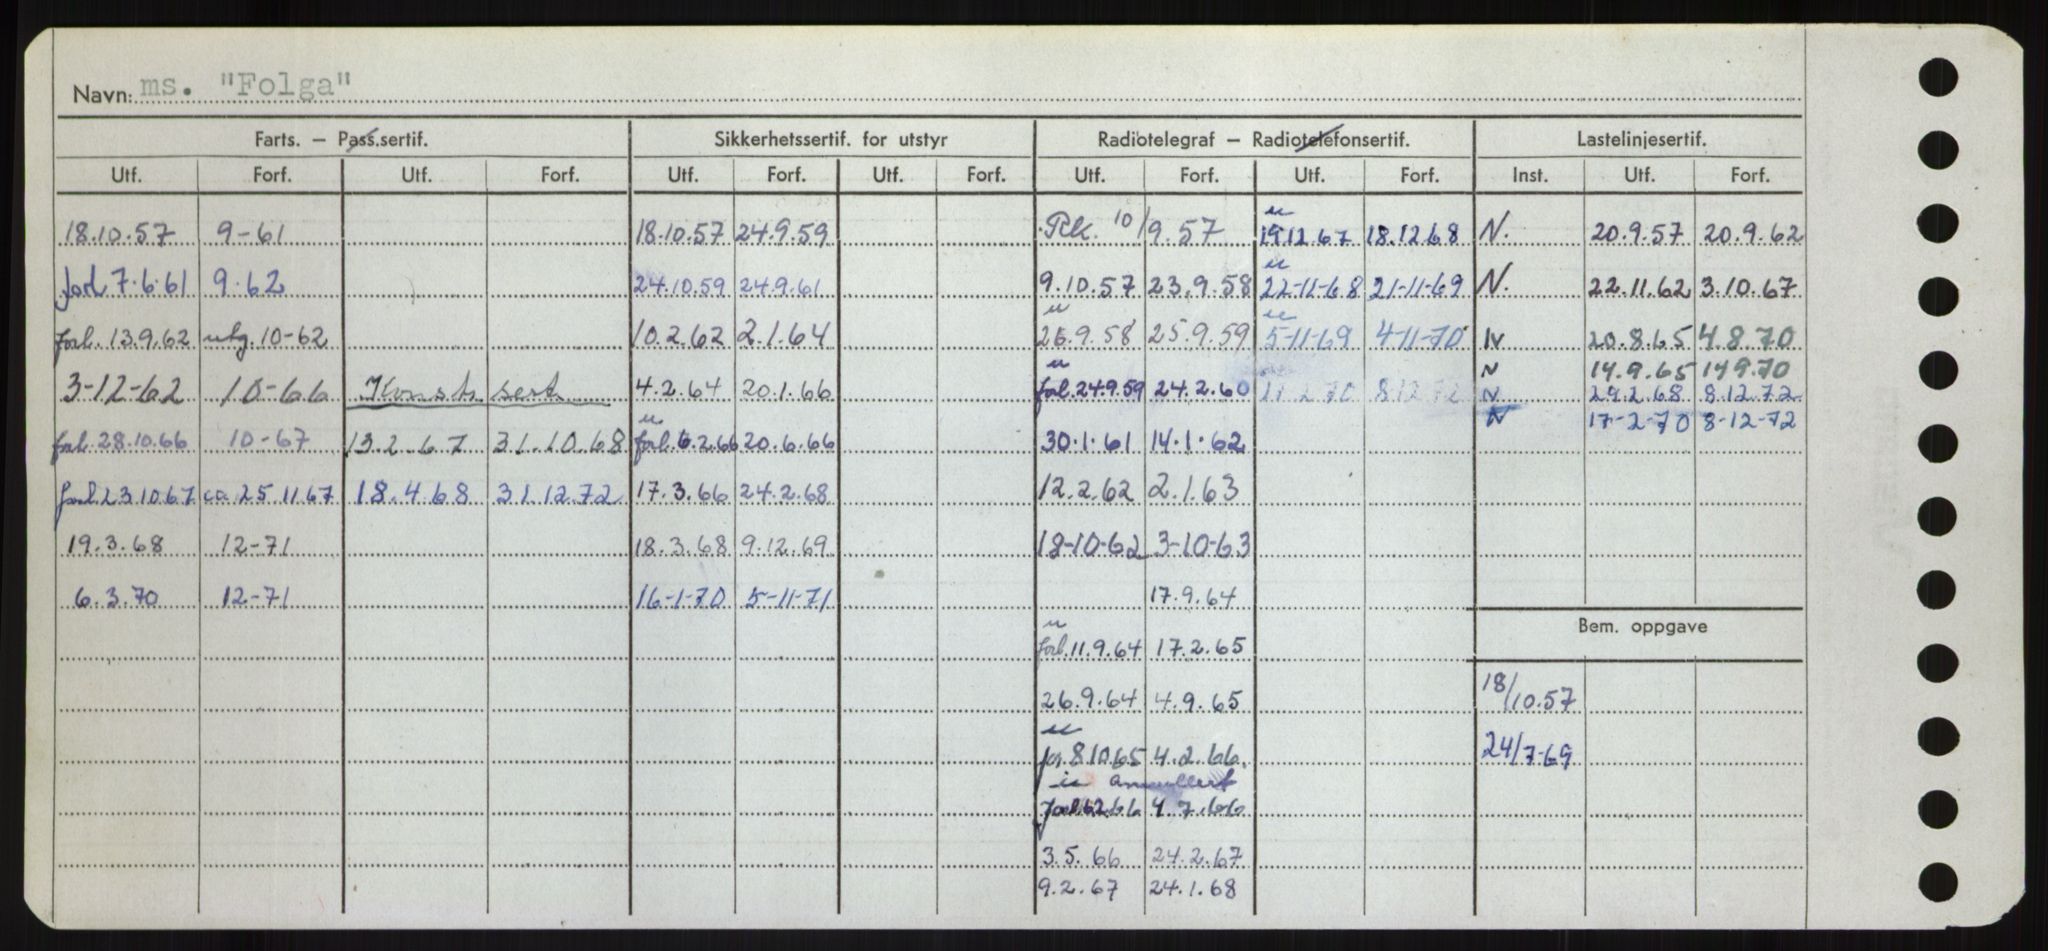 Navn: ms. "Folga"
Farts. — Pass.sertif. Sikkerhetssertif. for utstyr Radiotelegraf — Radiotelefonsertif. Lastelinjesertif.
Utf. Forf. Utf. Forf. Utf. Forf. Utf. Forf. Utf. Forf. Utf. Forf. Inst. Utf. Forf.
18.10.57 9-61 18.10.57 24.9.59 Rk. 10/9.57 u 19.12.67 18.12.68 N. 20.9.57 20.9.62
forl 7.6.61 9.62 24.10.59 24.9.61 9.10.57 23.9.58 u 22-11-68 21-11-69 N. 22.11.62 3.10.67
forl. 13.9.62 utg. 10-62 10.2.62 2.1.64 u 26.9.58 25.9.59 u 5-11-69 4-11-70 N 20.8.65 4.8.70
N 14.9.65 14.9.70
3-12-62 10-66 Konstr. sert. 4.2.64 20.1.66 u forl. 24.9.59 24.2.60 8.12.72 N 29.2.68 8.12.72
N 17-2-70 8-12-72
forl. 28.10.66 10-67 13.2.67 31.10.68 u forl. 6.2.66 20.6.66 30.1.61 14.1.62
forl 23.10.67 ca. 25.11.67 18.4.68 31.12.72 17.3.66 24.2.68 12.2.62 2.1.63
19.3.68 12-71 18.3.68 9.12.69 18-10-62 3-10-63
6.3.70 12-71 16-1-70 5-11-71 17.9.64
Bem. oppgave
u forl. 11.9.64 17.2.65
26.9.64 4.9.65 18/10.57
u for 8.10.65 4.2.66. 24/7-69
u annullert
forl. 6.2.66 4.7.66
3.5.66 24.2.67
9.2.67 24.1.68